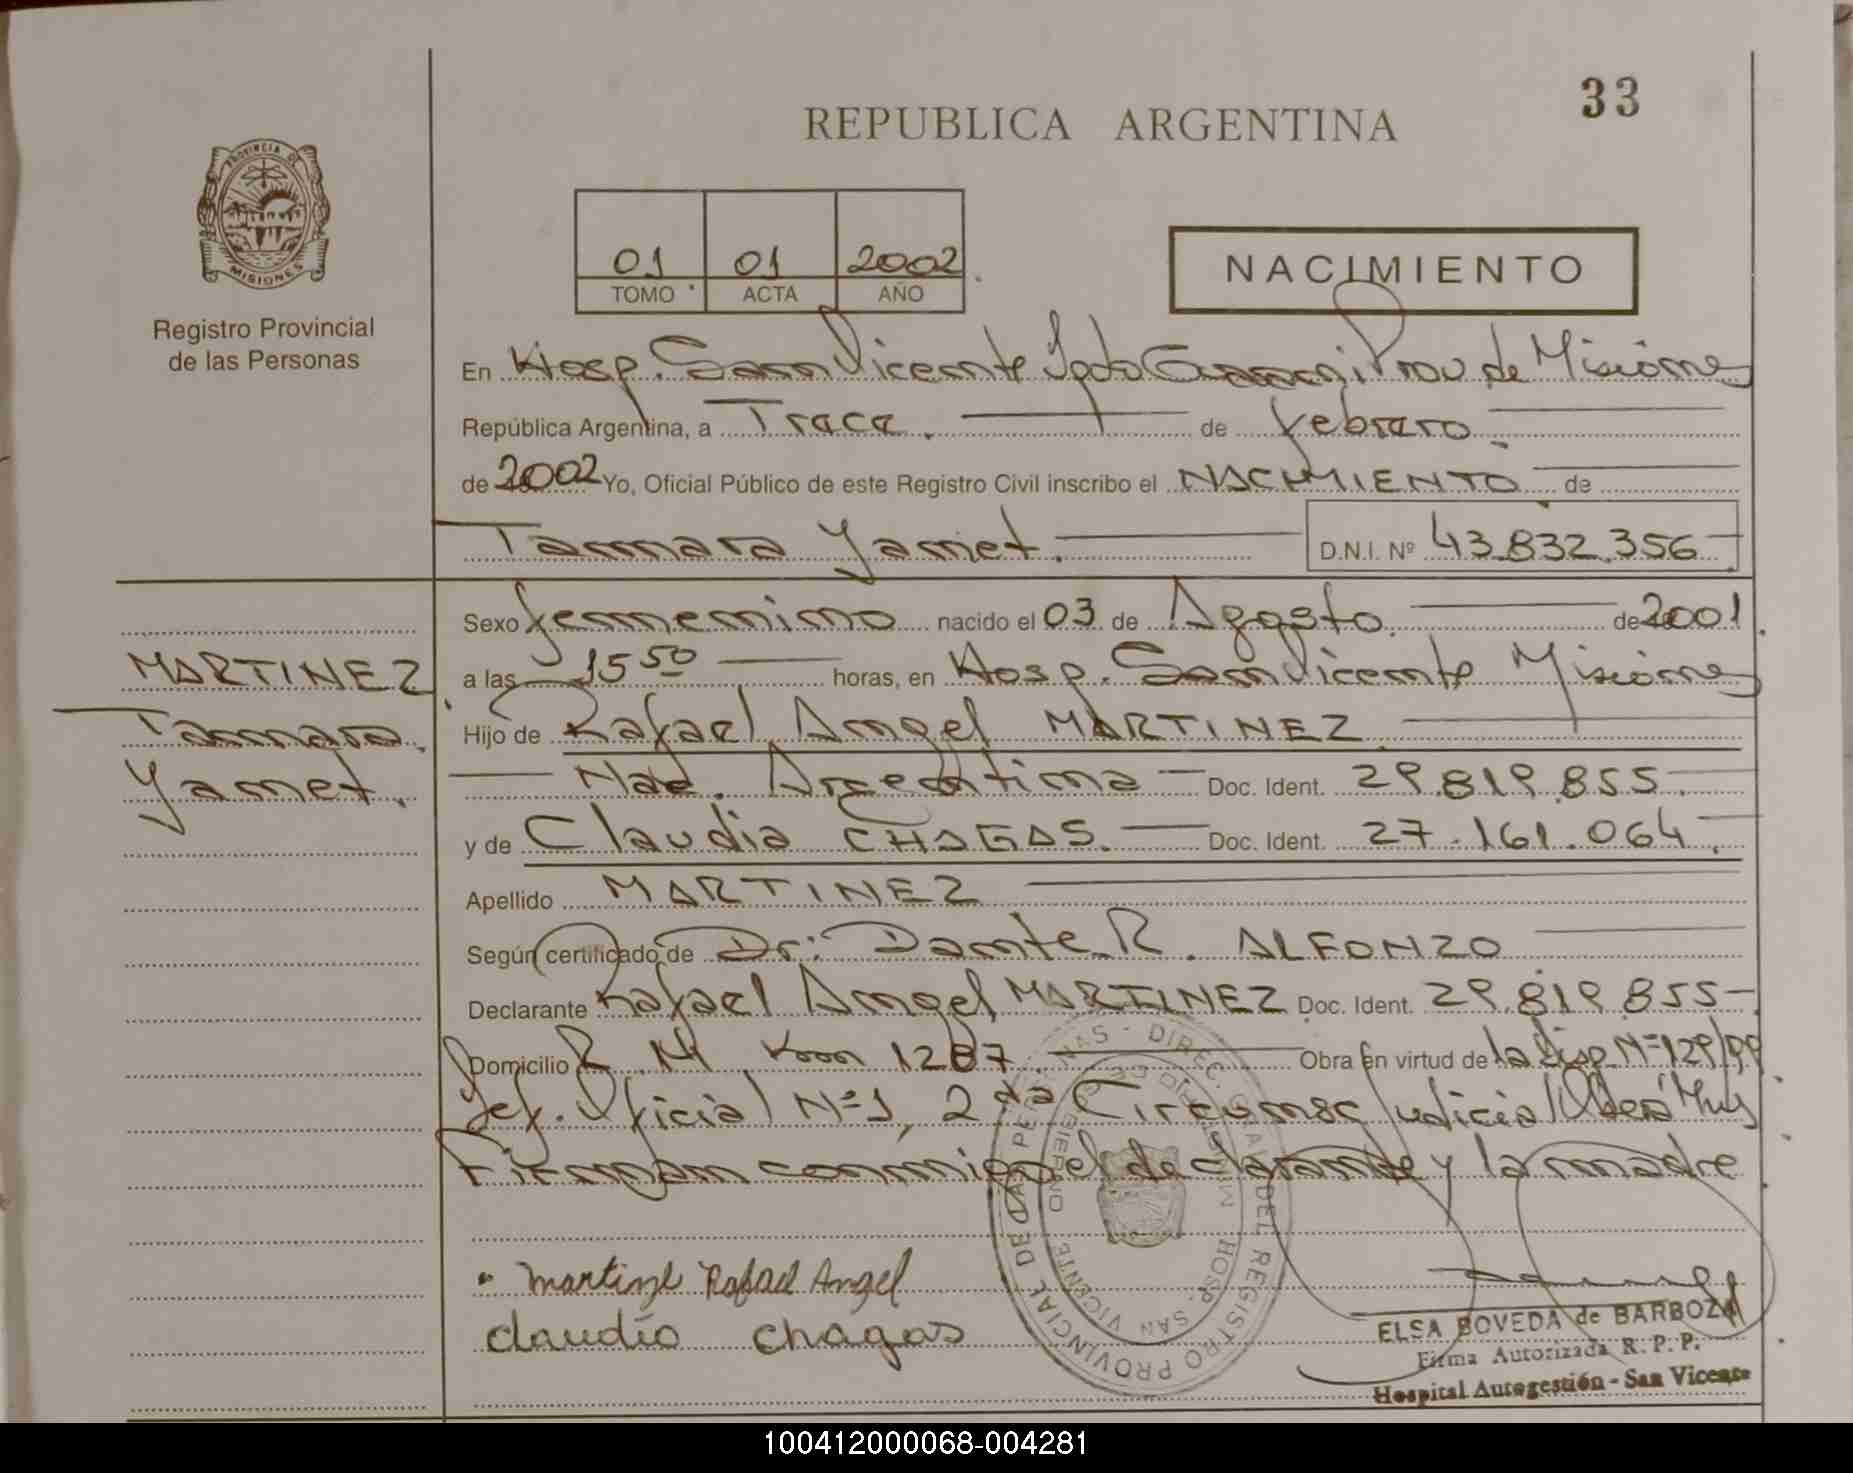 33
REPUBLICA ARGENTINA
PROVINCIA DE
MISIONES
Registro Provincial
de las Personas
01 01 2002
TOMO ACTA AÑO
NACIMIENTO
En Hosp. San Vicente Dpto Guarani Prov de Misiones
República Argentina, a Trece. de febrero.
de 2002 Yo, Oficial Público de este Registro Civil inscribo el NACIMIENTO de
Tamara Yanet. D.N.I. Nº 43.832.356
Sexo femenino nacido el 03 de Agosto. de 2001.
a las 15 50 horas, en Hosp. San Vicente Misiones
MARTINEZ
Tamara
Yanet.
Hijo de Rafael Angel MARTINEZ
Nac. Argentina Doc. Ident. 29.819.855.
y de Claudia CHAGAS. Doc. Ident. 27.161.064.
Apellido MARTINEZ
Según certificado de Dr: Dante R. ALFONZO
Declarante Rafael Angel MARTINEZ Doc. Ident. 29.819.855
Domicilio R. 14 Km 1287. Obra en virtud de la Disp. Nº 129/99
Jef. Oficial Nº 1, 2da Circunsc Judicial Oberá
Firman conmigo el declarante y la madre
Rafael Angel
claudia chagas
DIREC. GRAL DEL REGISTRO PROVINCIAL DE LAS PERSONAS
MINISTERIO DE GOBIERNO
HOSP. SAN VICENTE
ELSA BOVEDA de BARBOZA
Firma Autorizada R. P. P.
Hospital Autogestión - San Vicente
100412000068-004281